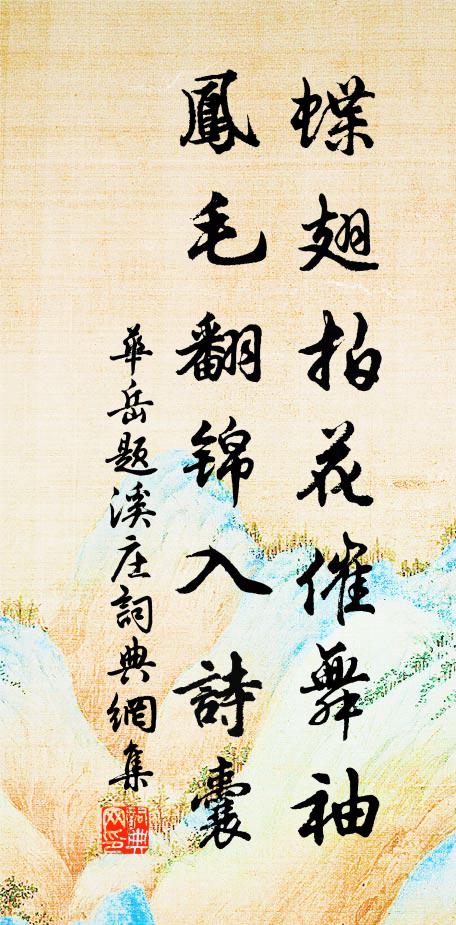 蝶翅拍花催舞袖
鳳毛翻錦入詩囊
華岳題溪庄詞典網集